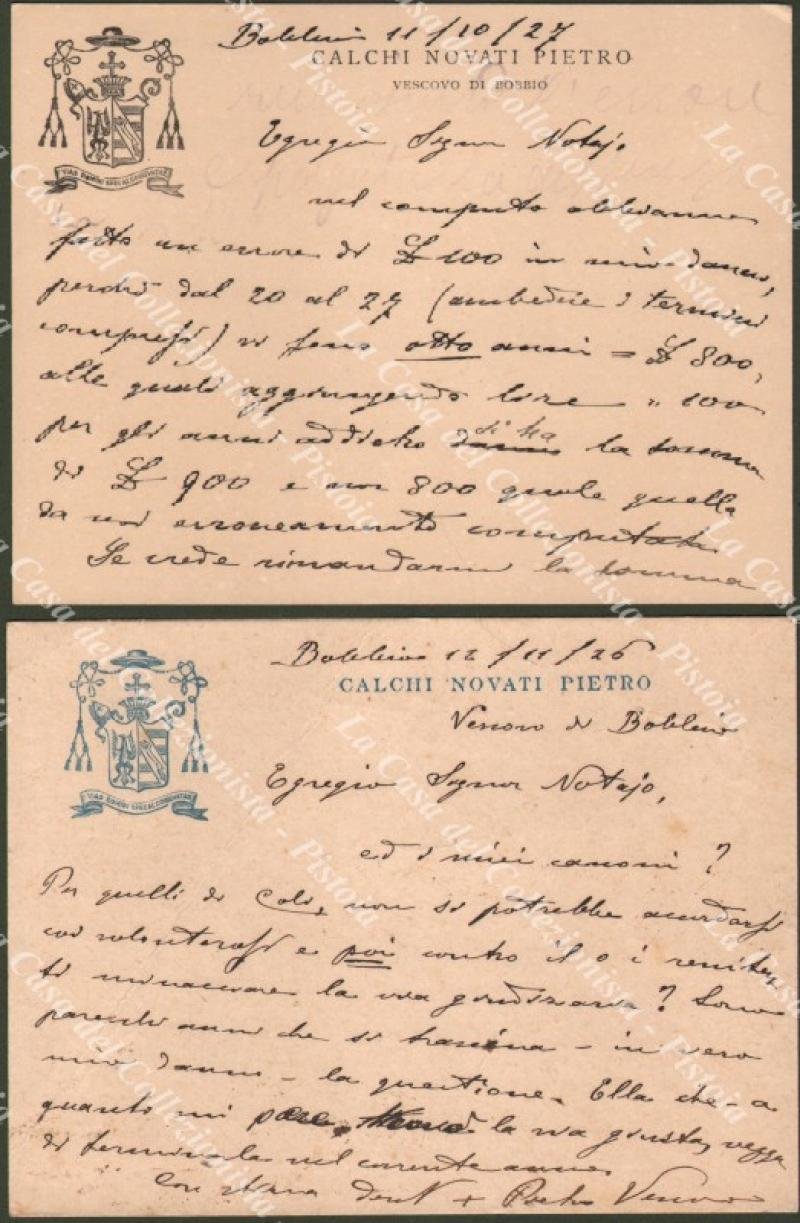 Bobbio 11/10/27
CALCHI NOVATI PIETRO
VESCOVO DI BOBBIO
Egregio Signor Notajo
nel computo abbiamo
fatto un errore di £ 100 in mio danno,
perchè dal 20 al 27 (ambedue i termini
compresi) vi sono otto anni = £ 800,
alle quali aggiungendo lire " 100
per gli anni addietro si ha la somma
di £ 900 e non 800 quale quella
da noi erroneamente computata
Se crede rimandarmi la somma
Bobbio 12/11/26
CALCHI NOVATI PIETRO
Vescovo di Bobbio
Egregio Signor Notajo,
ed i miei canoni?
Per quelli di Coli, non si potrebbe accordarsi
coi volonterosi e poi contro il o i reniten
ti minacciare la via giudiziaria? Sono
parecchi anni che si trascina - in vero
mio danno - la questione. Ella che - a
quanto mi pare, la via giusta, vegga
di terminarla nel corrente anno.
Con stima + Pietro Vescovo
La Casa del Collezionista - Pistoia